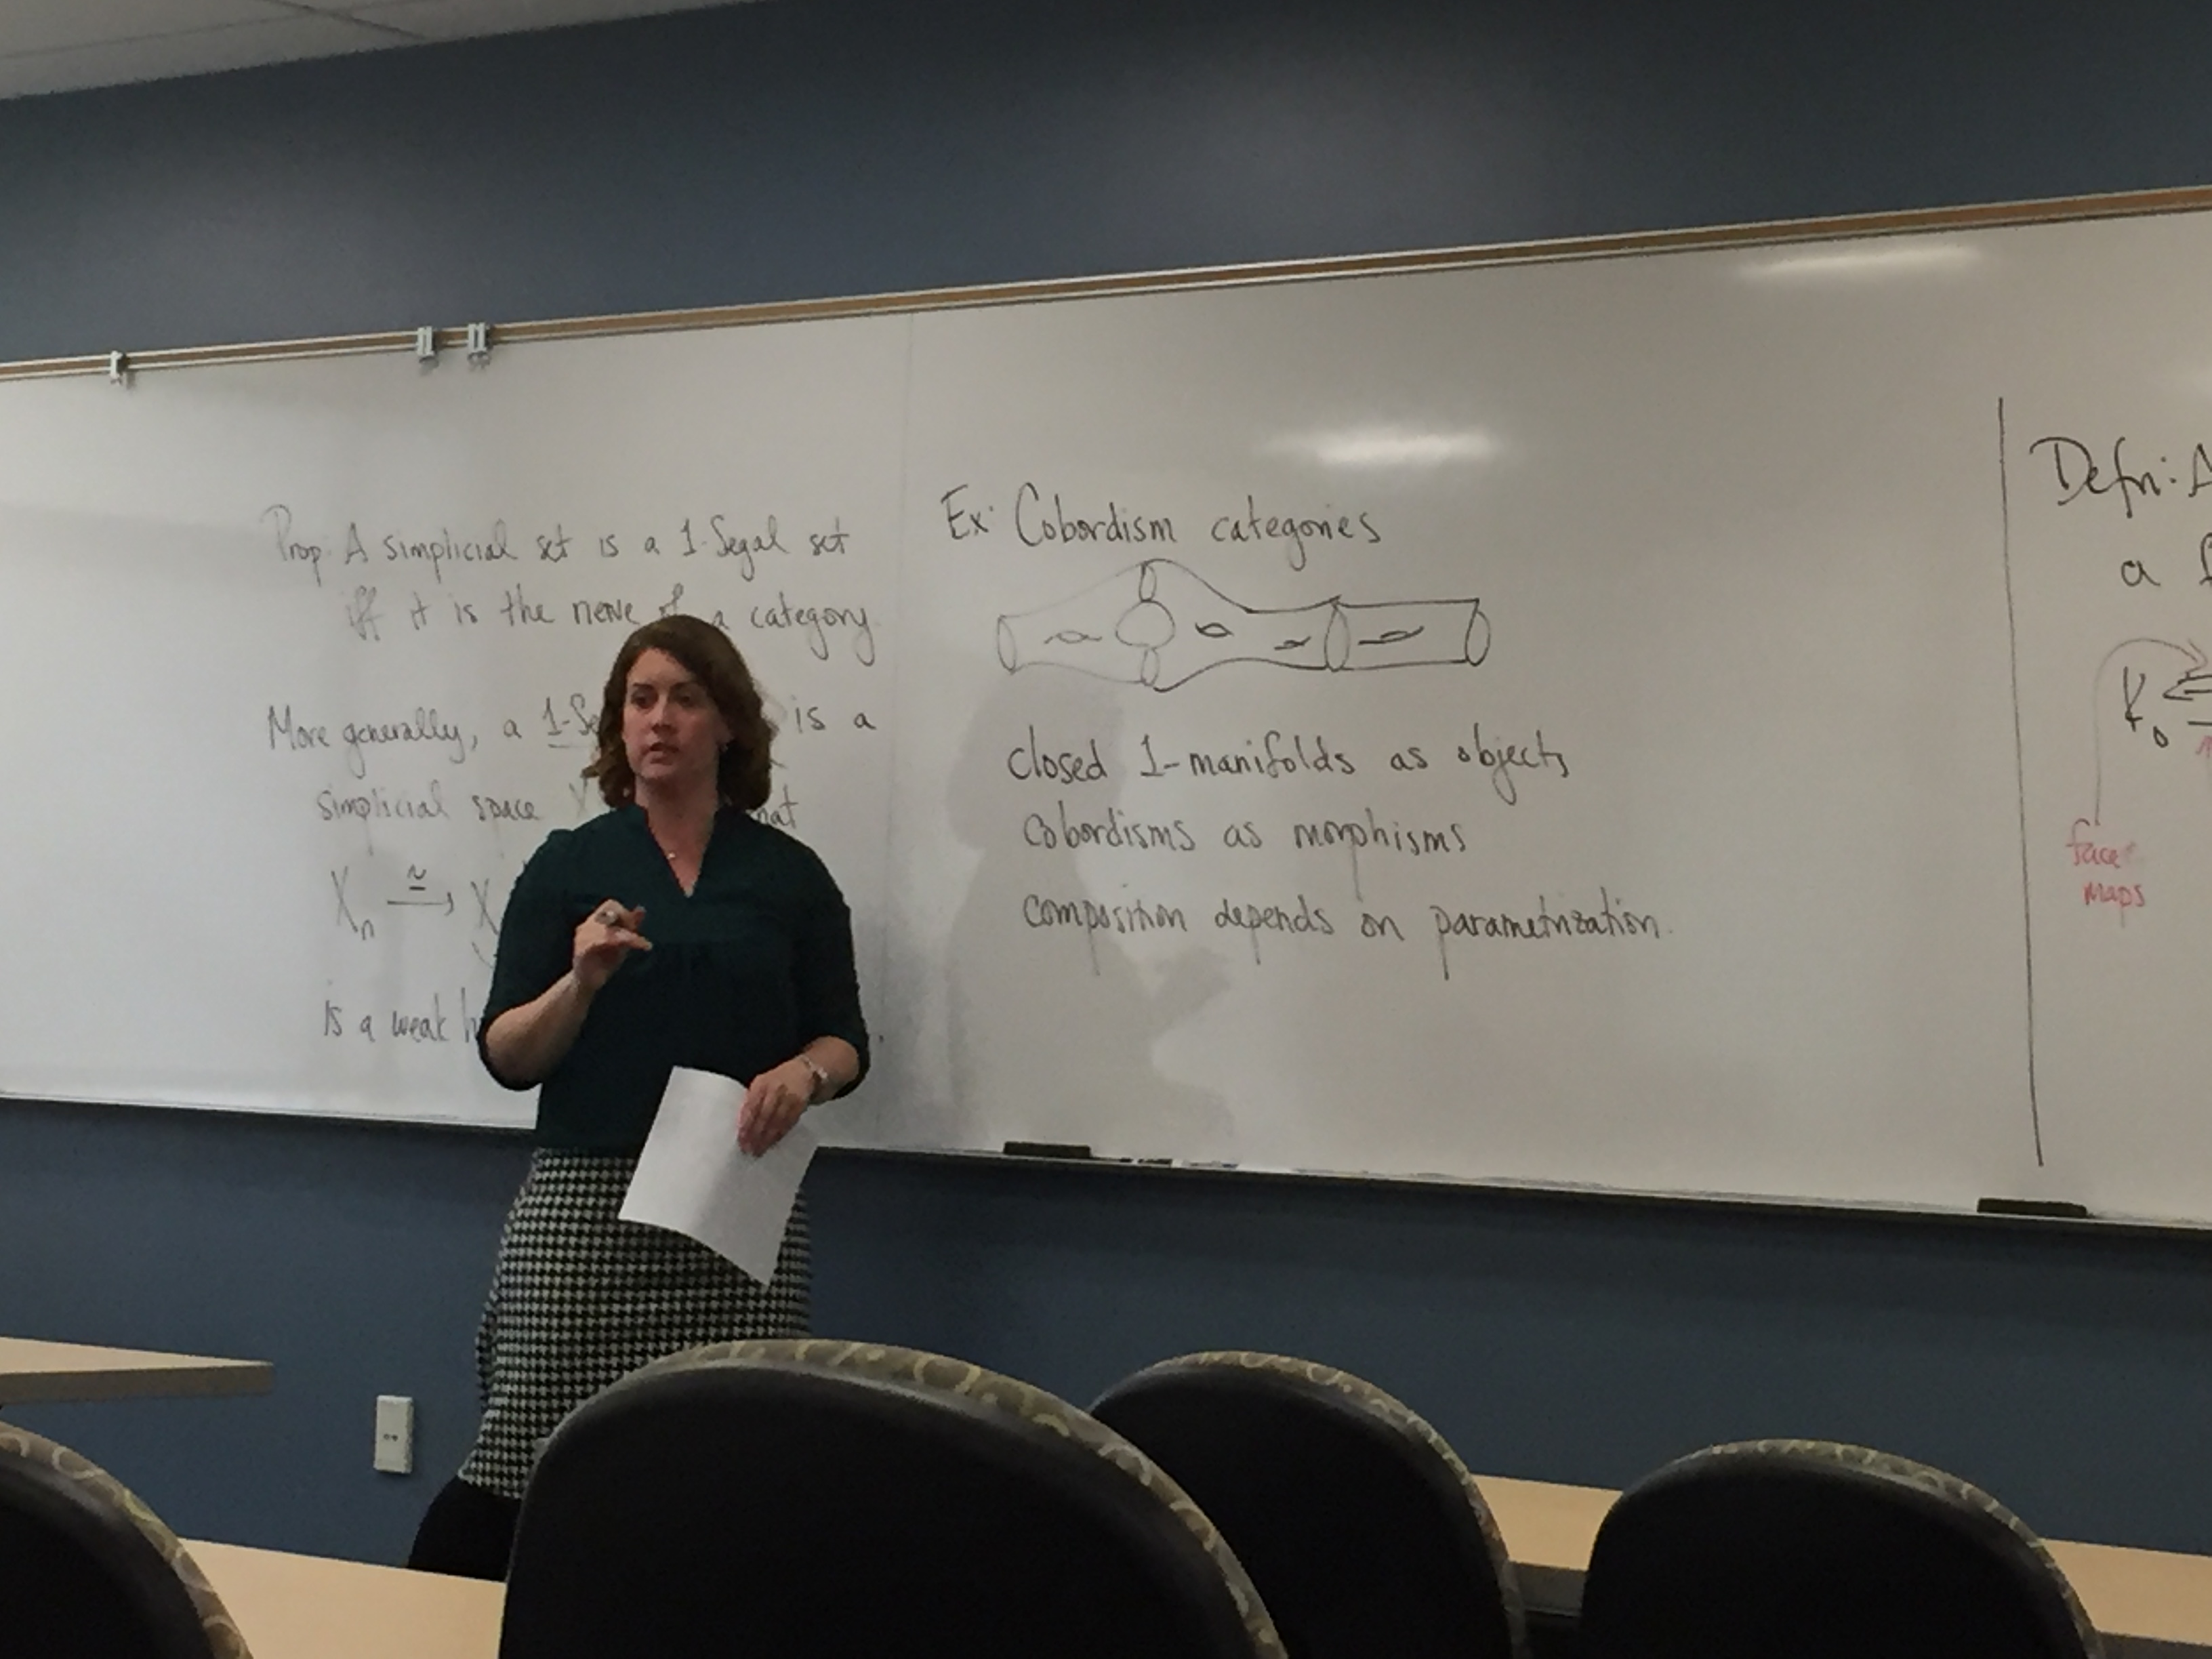 Prop: A simplicial set is a 1-Segal set
iff it is the nerve of a category.
More generally, a 1-Se is a
simplicial space
X_n ≃→ X
is a weak
Ex: Cobordism categories
closed 1-manifolds as objects
cobordisms as morphisms
composition depends on parametrization.
Defn: A
a
K_0
face
maps